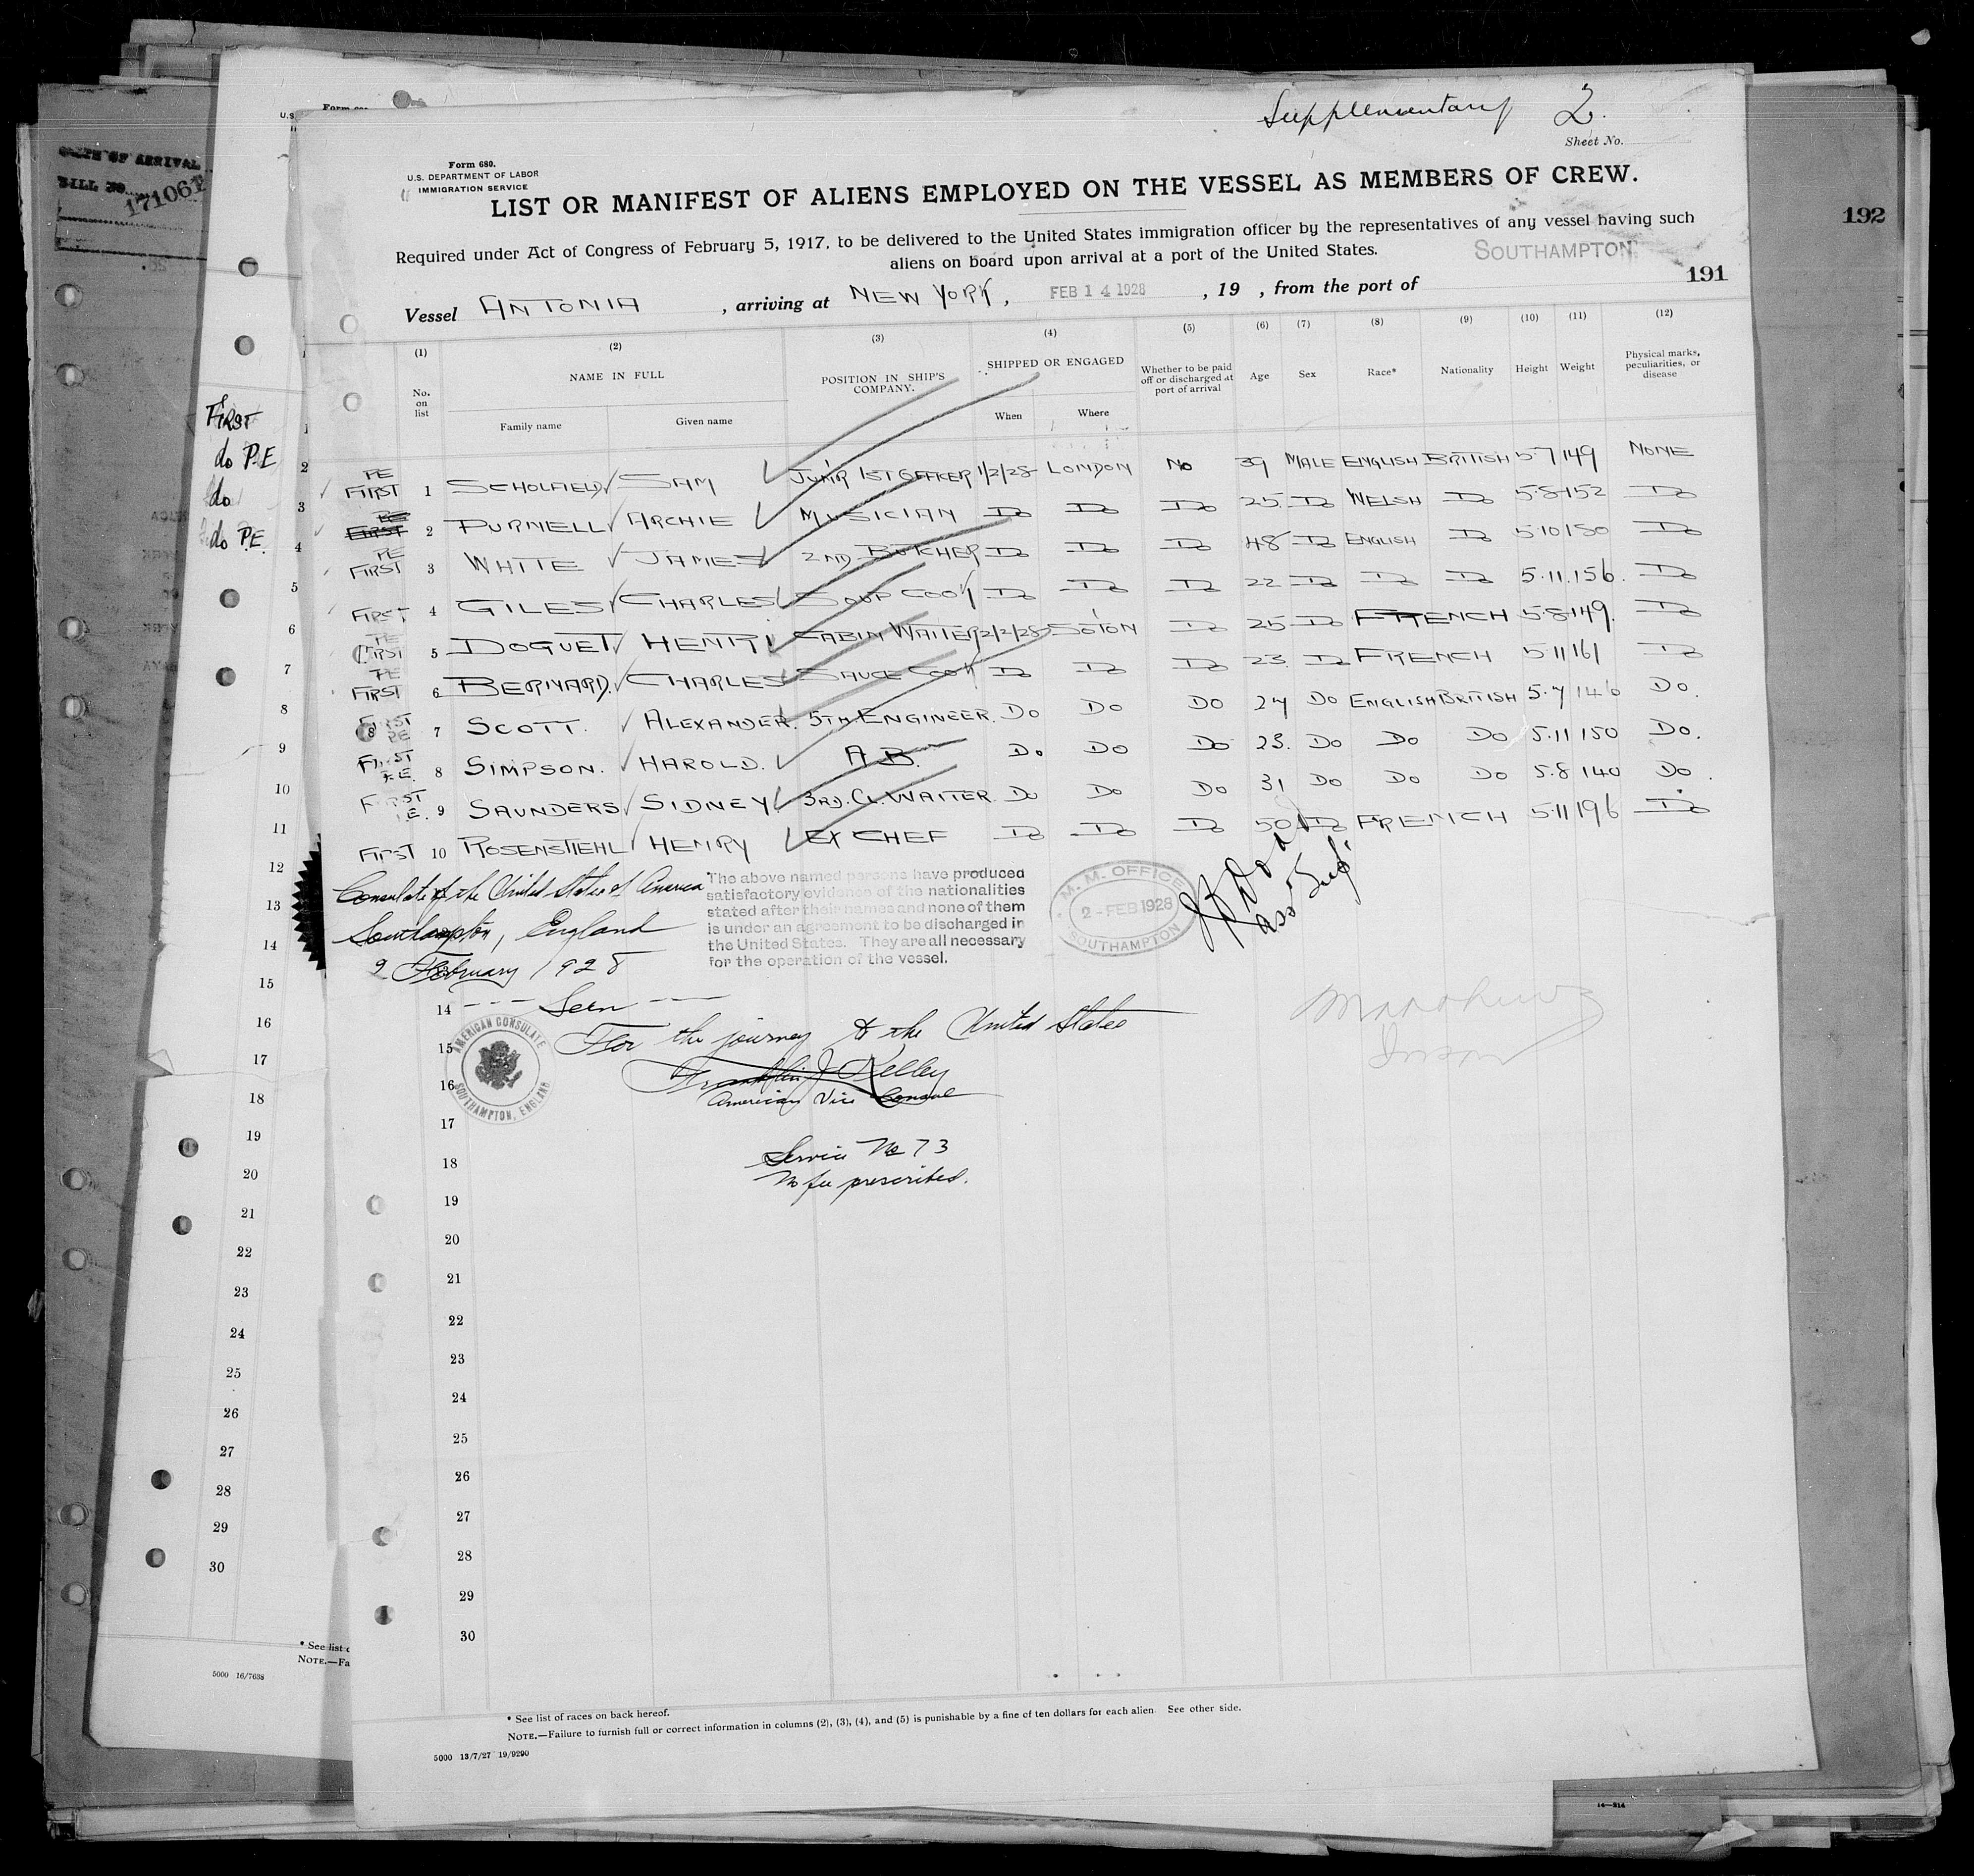 Supplementary 2.
Sheet No.
Form 680.
U.S. DEPARTMENT OF LABOR
IMMIGRATION SERVICE
LIST OR MANIFEST OF ALIENS EMPLOYED ON THE VESSEL AS MEMBERS OF CREW.
Required under Act of Congress of February 5, 1917, to be delivered to the United States immigration officer by the representatives of any vessel having such
aliens on board upon arrival at a port of the United States.
SOUTHAMPTON
191
192
171061
Vessel ANTONIA , arriving at NEW YORK, FEB 14 1928 , 19 , from the port of
(1) (2) (3) (4) (5) (6) (7) (8) (9) (10) (11) (12)
No. on list NAME IN FULL POSITION IN SHIP'S COMPANY. SHIPPED OR ENGAGED Whether to be paid off or discharged at port of arrival Age Sex Race* Nationality Height Weight Physical marks, peculiarities, or disease
Family name Given name When Where
PE FIRST 1 SCHOLFIELD SAM JUN'R 1ST OFFICER 1/2/28 LONDON No 39 MALE ENGLISH BRITISH 5-7 149 NONE
PE FIRST 2 PURNELL ARCHIE MUSICIAN Do Do Do 25 Do WELSH Do 5.8 152 Do
PE FIRST 3 WHITE JAMES 2ND BUTCHER Do Do Do 48 Do ENGLISH Do 5.10 150 Do
FIRST 4 GILES CHARLES SOUP COOK Do Do Do 22 Do Do Do 5.11. 156. Do
PE FIRST 5 DOGUET HENRI CABIN WAITER 2/2/28 SO'TON Do 25 Do FRENCH 5.8 149. Do
PE FIRST 6 BERNARD. CHARLES SAUCE COOK Do Do Do 23. Do FRENCH 5.11 161 Do
FIRST PE 7 SCOTT. ALEXANDER. 5TH ENGINEER. Do Do Do 24 Do ENGLISH BRITISH 5.7 146 Do.
FIRST P.E. 8 SIMPSON. HAROLD. A.B. Do Do Do 23. Do Do Do 5.11 150 Do.
FIRST P.E. 9 SAUNDERS SIDNEY 3RD. CL. WAITER Do Do Do 31 Do Do Do 5.8 140 Do.
FIRST 10 ROSENSTIEHL HENRY EX CHEF Do Do Do 50 Do FRENCH 5.11 196 Do
Consulate of the United States of America
Southampton, England
2 February 1928
The above named persons have produced
satisfactory evidence of the nationalities
stated after their names and none of them
is under an agreement to be discharged in
the United States. They are all necessary
for the operation of the vessel.
M. M. OFFICE
2 - FEB 1928
SOUTHAMPTON
14 --- Seen ---
15 For the journey to the United States
16 Franklin J Kelley
American Vice Consul
AMERICAN CONSULATE
SOUTHAMPTON, ENGLAND
17
18 Service No 73
No fee prescribed.
19
20
21
22
23
24
25
26
27
28
29
30
* See list of races on back hereof.
NOTE.—Failure to furnish full or correct information in columns (2), (3), (4), and (5) is punishable by a fine of ten dollars for each alien. See other side.
5000 13/7/27 19/9290
FIRST
do P.E
do
do P.E.
2
3
4
5
6
7
8
9
10
11
12
13
14
15
16
17
18
19
20
21
22
23
24
25
26
27
28
29
30
* See list
NOTE.—Fa
5000 16/7638
14—214